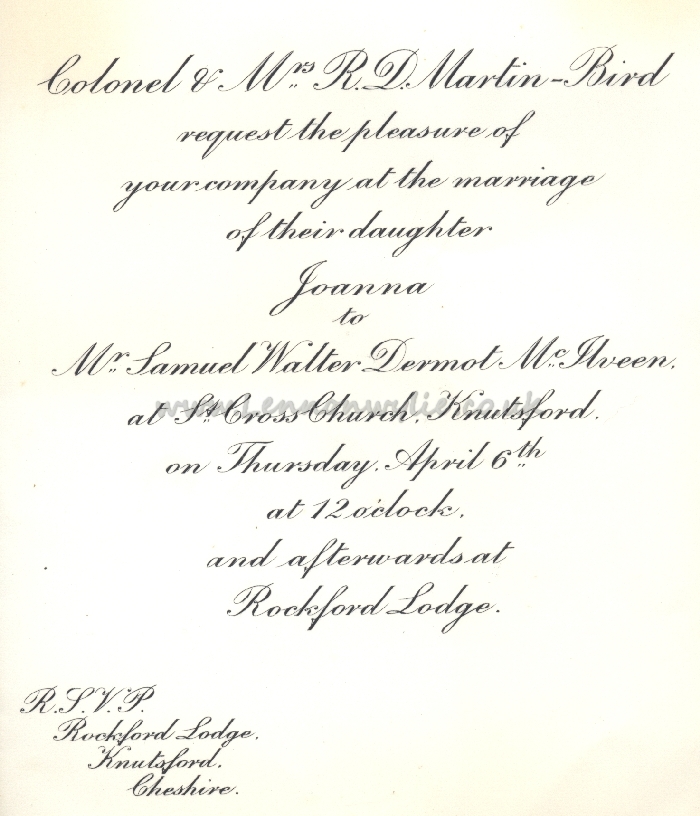 Colonel & Mrs R. D. Martin-Bird
request the pleasure of
your company at the marriage
of their daughter
Joanna
to
Mr Samuel Walter Dermot McIlveen,
at St Cross Church, Knutsford.
on Thursday, April 6th
at 12 o'clock,
and afterwards at
Rockford Lodge.
R.S.V.P.
Rockford Lodge,
Knutsford,
Cheshire.